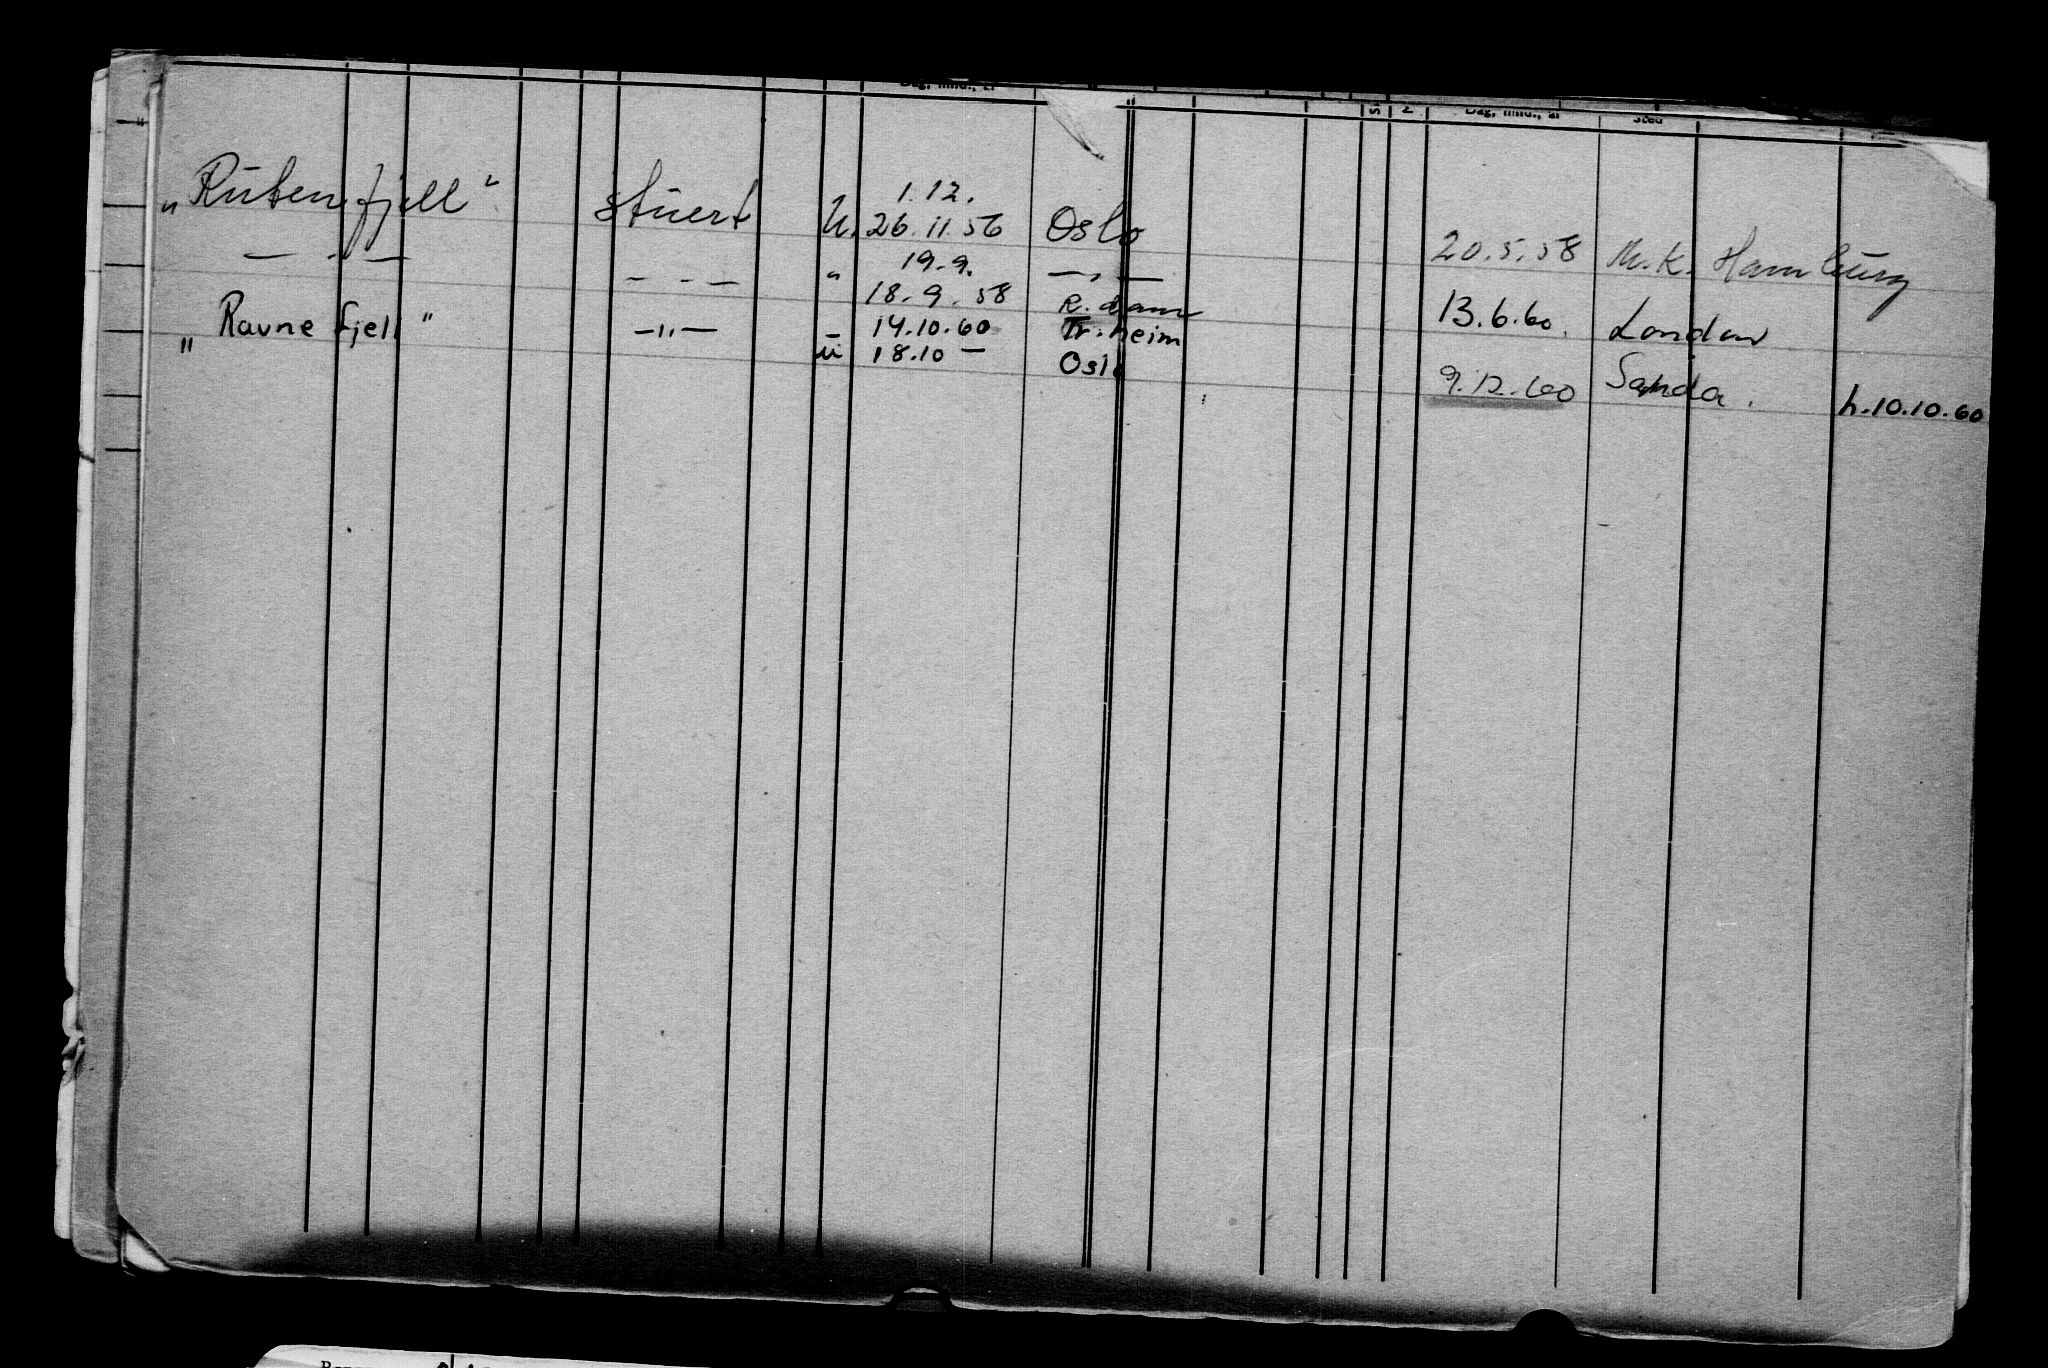 Dag, mnd., år S N Dag, mnd., år Sted
"
1.12.
„Rutenfjell" stuert U. 26.11 56 Oslo 20.5.58 M.K. Hamburg
19.9.
— " — — " — " 18.9.58 — " — R.dam 13.6.60. London
„Ravnefjell" —"— ü 14.10.60 Tr.heim
ü 18.10 — Oslo 9.12.60 Sanda. h.10.10.60